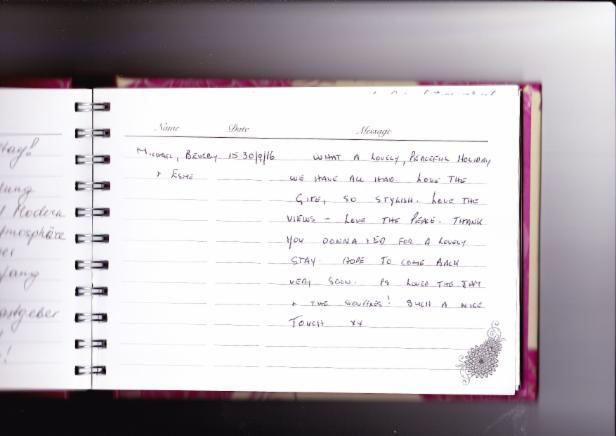 tay!
ung
Modern
tmosphäre
er
fang
astgeber
!
Name Date Message
Michael, Beverly 15-30/9/16 WHAT A LOVELY, PEACEFUL HOLIDAY
+ ESME WE HAVE ALL HAD. LOVE THE
GITE, SO STYLISH. LOVE THE
VIEWS - LOVE THE PEACE. THANK
YOU DONNA + ED FOR A LOVELY
STAY. HOPE TO COME BACK
VERY SOON. PS LOVED THE JAM
+ THE SOUFFLES! SUCH A NICE
TOUCH xx